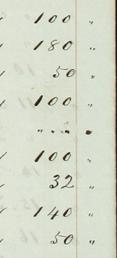 100 "
180 "
50 "
100 "
" " " "
100 "
32 "
140 "
50 "